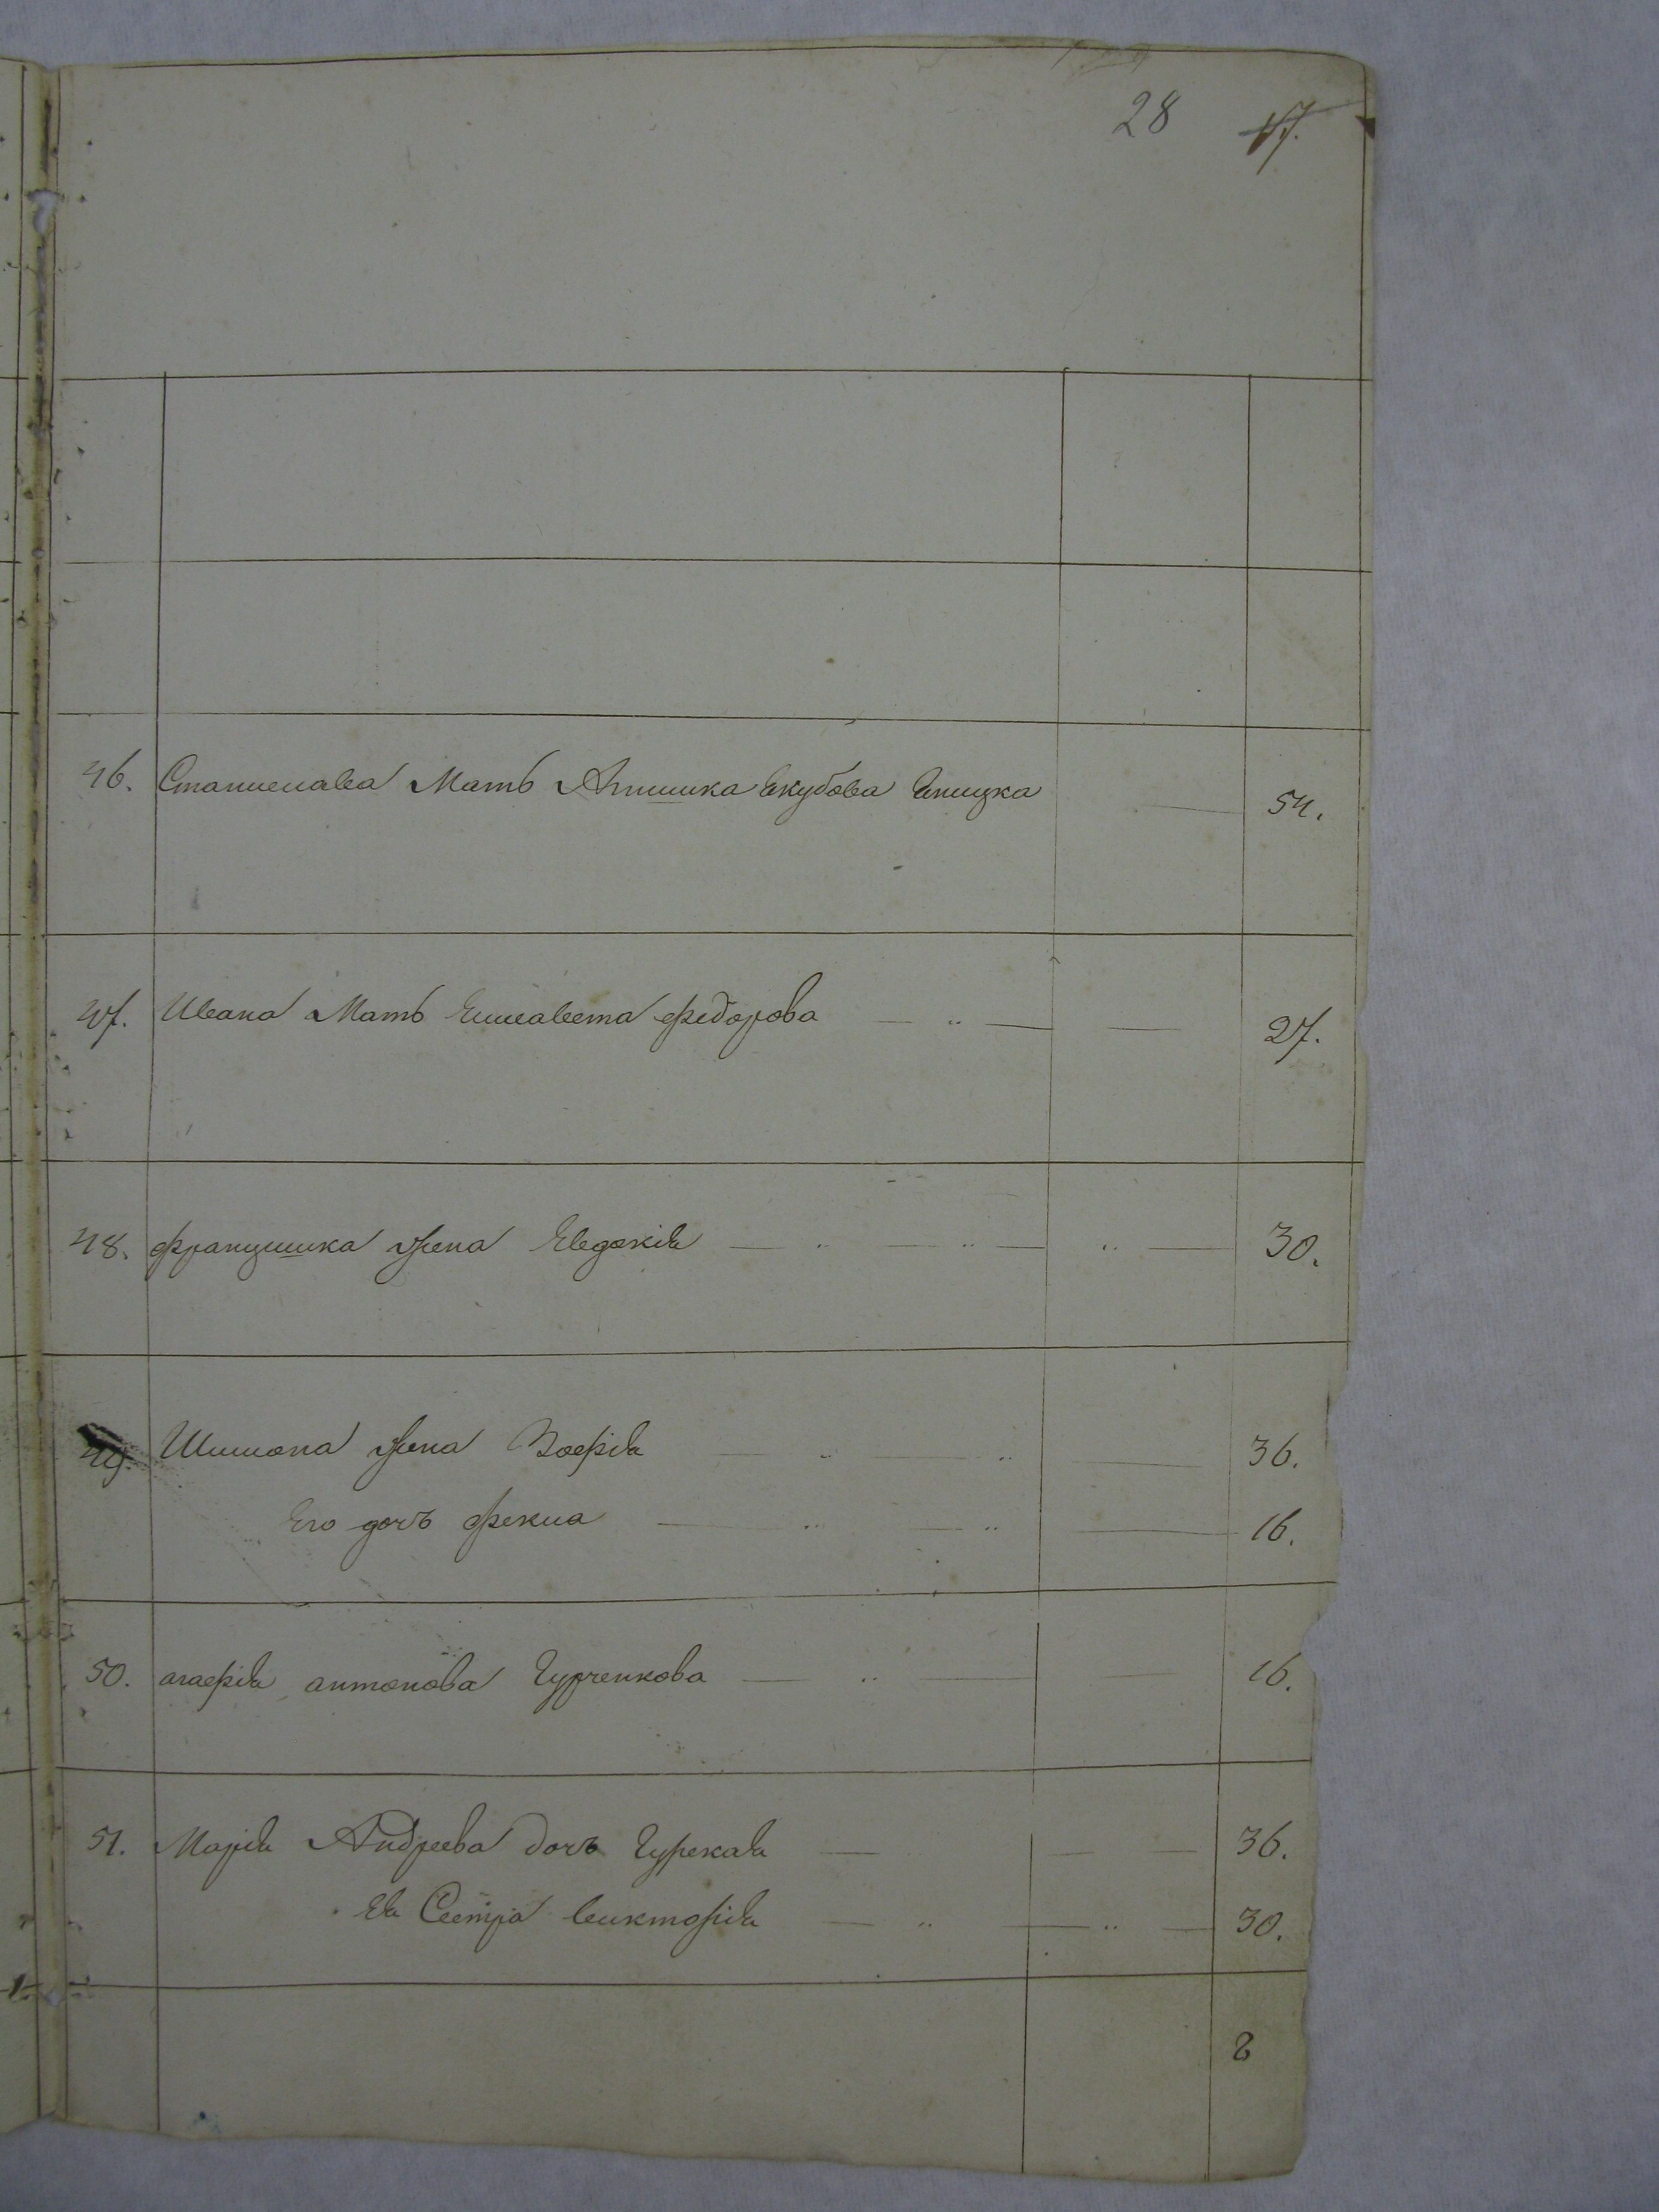 28 17.
46. Станислава Мать Якубова 54.
47. Ивана Мать Елисавета Федорова — „ — — 27.
48. Францишка жена Евдокія — „ — „ — „ — 30.
49. Шимона жена Зофія — „ — „ — 36.
Его дочь Фекла — „ — „ — 16.
50. агафія антонова Гурченкова — „ — — 16.
51. Марія Андреева дочь — — — 36.
Ея Сестра Викторія — „ — „ — 30.
8